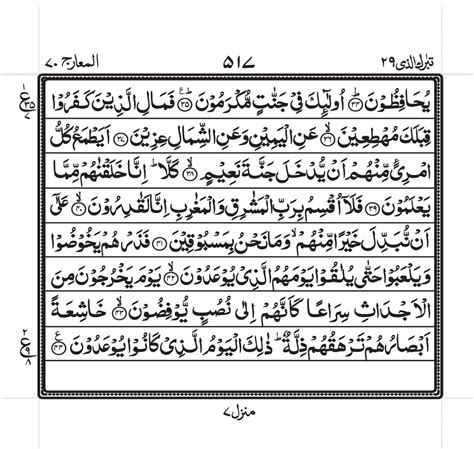 تبرك الذى ٢٩ ٥١٧ المعارج ٧٠
يُحَافِظُوْنَ ۝٣٤ اُولٰٓئِكَ فِيْ جَنّٰتٍ مُّكْرَمُوْنَ ۝٣٥ فَمَالِ الَّذِيْنَ كَفَرُوْا
قِبَلَكَ مُهْطِعِيْنَ ۝٣٦ عَنِ الْيَمِيْنِ وَعَنِ الشِّمَالِ عِزِيْنَ ۝٣٧ اَيَطْمَعُ كُلُّ
امْرِئٍ مِّنْهُمْ اَنْ يُّدْخَلَ جَنَّةَ نَعِيْمٍ ۝٣٨ كَلَّا ؕ اِنَّا خَلَقْنٰهُمْ مِّمَّا
يَعْلَمُوْنَ ۝٣٩ فَلَاۤ اُقْسِمُ بِرَبِّ الْمَشٰرِقِ وَالْمَغٰرِبِ اِنَّا لَقٰدِرُوْنَ ۝٤٠ عَلٰٓى
اَنْ نُّبَدِّلَ خَيْرًا مِّنْهُمْ ۙ وَمَا نَحْنُ بِمَسْبُوْقِيْنَ ۝٤١ فَذَرْهُمْ يَخُوْضُوْا
وَيَلْعَبُوْا حَتّٰى يُلٰقُوْا يَوْمَهُمُ الَّذِيْ يُوْعَدُوْنَ ۝٤٢ يَوْمَ يَخْرُجُوْنَ مِنَ
الْاَجْدَاثِ سِرَاعًا كَاَنَّهُمْ اِلٰى نُصُبٍ يُّوْفِضُوْنَ ۝٤٣ خَاشِعَةً
اَبْصَارُهُمْ تَرْهَقُهُمْ ذِلَّةٌ ؕ ذٰلِكَ الْيَوْمُ الَّذِيْ كَانُوْا يُوْعَدُوْنَ ۝٤٤
منزل ٧